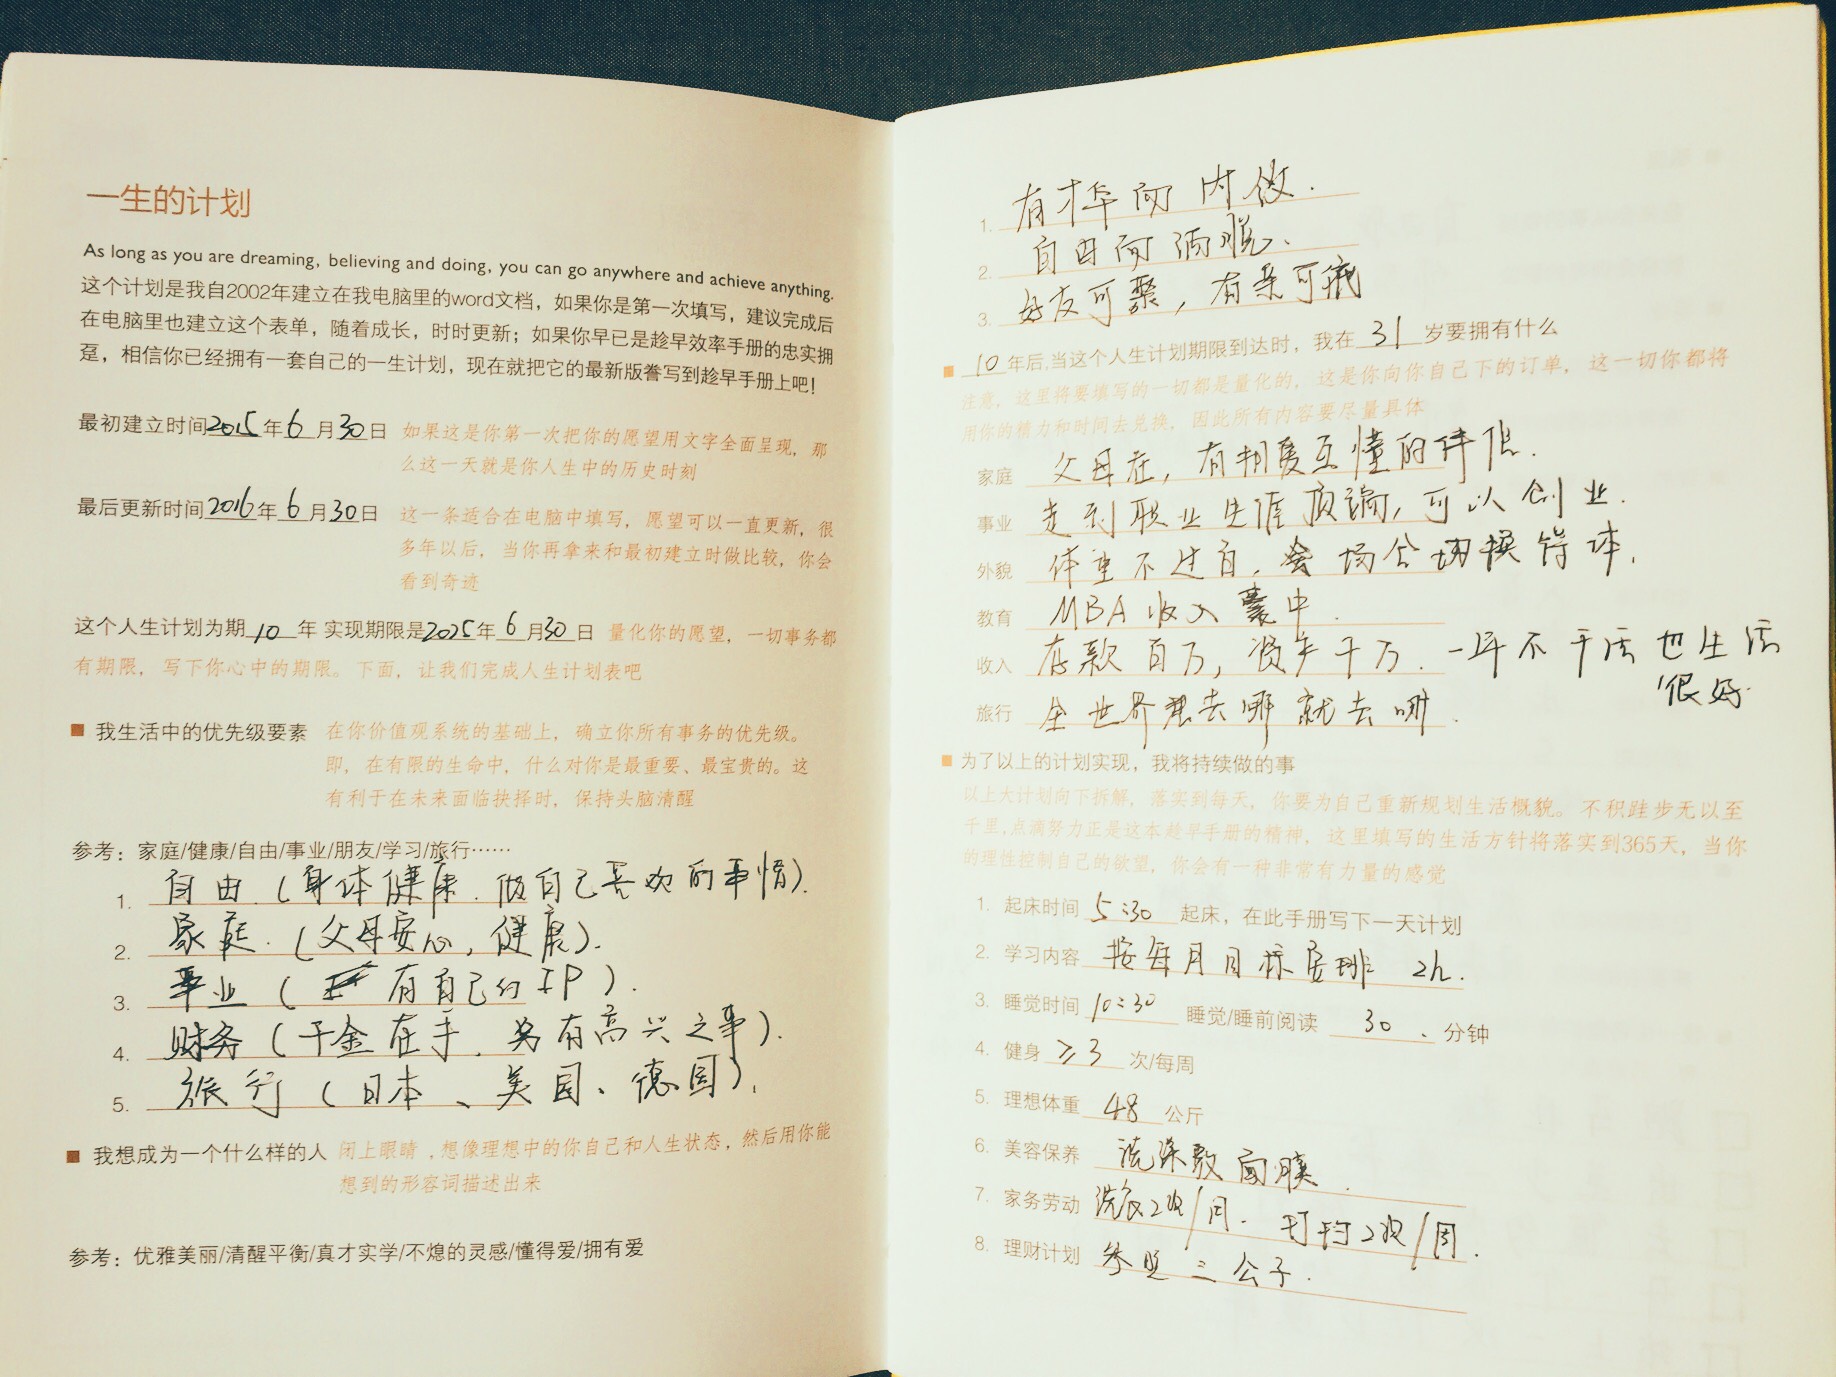 一生的计划
As long as you are dreaming, believing and doing, you can go anywhere and achieve anything.
这个计划是我自2002年建立在我电脑里的word文档，如果你是第一次填写，建议完成后
在电脑里也建立这个表单，随着成长，时时更新；如果你早已是趁早效率手册的忠实拥
趸，相信你已经拥有一套自己的一生计划，现在就把它的最新版誊写到趁早手册上吧！
最初建立时间2015年6月30日 如果这是你第一次把你的愿望用文字全面呈现，那
么这一天就是你人生中的历史时刻
最后更新时间2016年6月30日 这一条适合在电脑中填写，愿望可以一直更新，很
多年以后，当你再拿来和最初建立时做比较，你会
看到奇迹
这个人生计划为期10年 实现期限是2025年6月30日 量化你的愿望，一切事务都
有期限，写下你心中的期限。下面，让我们完成人生计划表吧
我生活中的优先级要素 在你价值观系统的基础上，确立你所有事务的优先级。
即，在有限的生命中，什么对你是最重要、最宝贵的。这
有利于在未来面临抉择时，保持头脑清醒
参考：家庭/健康/自由/事业/朋友/学习/旅行……
1. 自由（身体健康．做自己喜欢的事情）．
2. 家庭．（父母安心，健康）．
3. 事业（有自己的IP）．
4. 财务（千金在手．另有高兴之事）．
5. 旅行（日本、美国、德国）．
我想成为一个什么样的人 闭上眼睛，想像理想中的你自己和人生状态，然后用你能
想到的形容词描述出来
参考：优雅美丽/清醒平衡/真才实学/不熄的灵感/懂得爱/拥有爱
1. 有才华而内敛．
2. 自由而洒脱．
3. 好友可聚，有亲可
10年后，当这个人生计划期限到达时，我在31岁要拥有什么
注意，这里将要填写的一切都是量化的，这是你向你自己下的订单，这一切你都将
用你的精力和时间去兑换，因此所有内容要尽量具体
家庭 父母在，有相爱互懂的伴侣．
事业 走到职业生涯顶端，可以创业．
外貌 体重不过百，场合切换得体．
教育 MBA收入囊中．
收入 存款百万，资产千万．一年不干活也生活
很好．
旅行 全世界想去哪就去哪．
为了以上的计划实现，我将持续做的事
以上大计划向下拆解，落实到每天，你要为自己重新规划生活概貌。不积跬步无以至
千里，点滴努力正是这本趁早手册的精神，这里填写的生活方针将落实到365天，当你
的理性控制自己的欲望，你会有一种非常有力量的感觉
1. 起床时间 5:30 起床，在此手册写下一天计划
2. 学习内容 按每月目标安排 2h．
3. 睡觉时间 10:30 睡觉/睡前阅读 30．分钟
4. 健身 ≥3 次/每周
5. 理想体重 48 公斤
6. 美容保养 洗澡敷面膜．
7. 家务劳动 洗衣2次/周．打扫2次/周．
8. 理财计划 参照三公子．